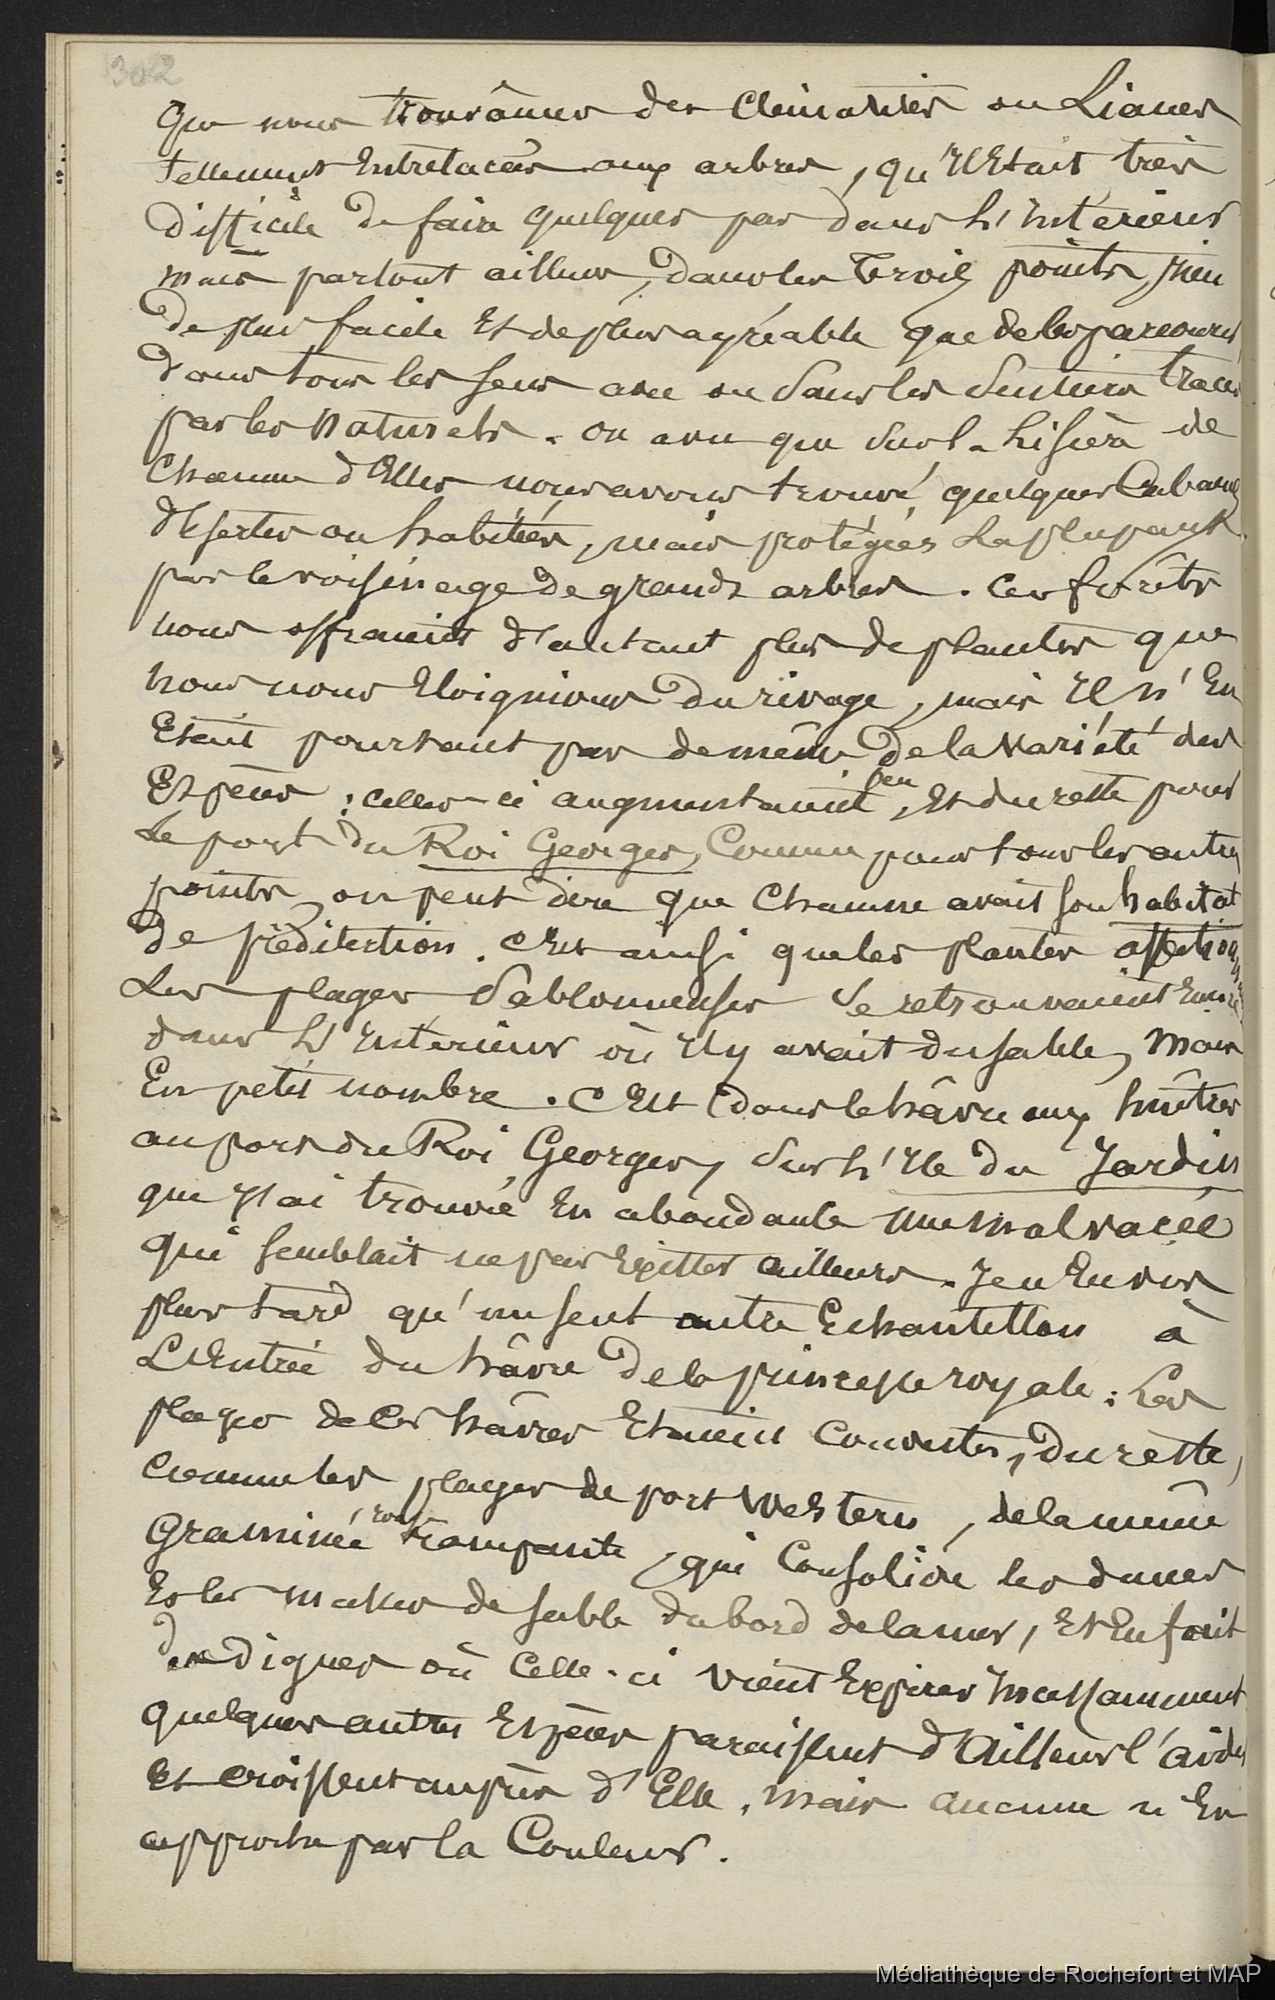 302
que nous trouvâmes des Clématites ou Lianes
tellement Entrelacées aux arbres, qu'Il Etait très
difficile de faire quelques pas dans L'Intérieur
mais partout ailleurs, dans les trois points, rien
de plus facile Et de plus agréable que de les parcourir
dans tous les sens avec ou sans les sentiers tracés
par les naturels. on a vu que sur la Lisière de
Chacune d'Elles nous avons trouvé quelques Cabanes
désertes ou habitées, mais protégées La plupart
par le voisinage de grands arbres. Ces forêts
nous offraient d'autant plus de plantes que
nous nous Eloignions du rivage, mais Il n'En
Etait pourtant pas de même de la variété des
Espèces ; celles-ci augmentaient peu, Et du reste pour
Le port du Roi Georges, Comme pour tous les autres
points, on peut dire que Chacune avait son habitat
de prédilection. C'Est ainsi que les plantes
Les plages Sablonneuses Se retrouvaient Encore
dans L'Intérieur où Il y avait du sable, Mais
En petit nombre. C'Est dans le hâvre aux huîtres
au port du Roi Georges, sur L'Ile du Jardin
que J'ai trouvé En abondance une malvacée
qui semblait ne pas Exister ailleurs. Je n'En vis
plus tard qu'un seul autre Echantillon à
L'Entrée du hâvre de la princesse royale : Les
plages de Ces hâvres Etaient Couvertes, du reste,
Comme les plages de port Western, de la même
Graminée rampante, qui Consolide les dunes
Et les de sable du bord de la mer, Et En fait
des digues où Celle-ci vient Expirer Incessamment
quelques autres Espèces paraissent d'ailleurs l'aider
Et croissent auprès d'Elle, mais aucune n'En
approche par la Couleur.
Médiathèque de Rochefort et MAP